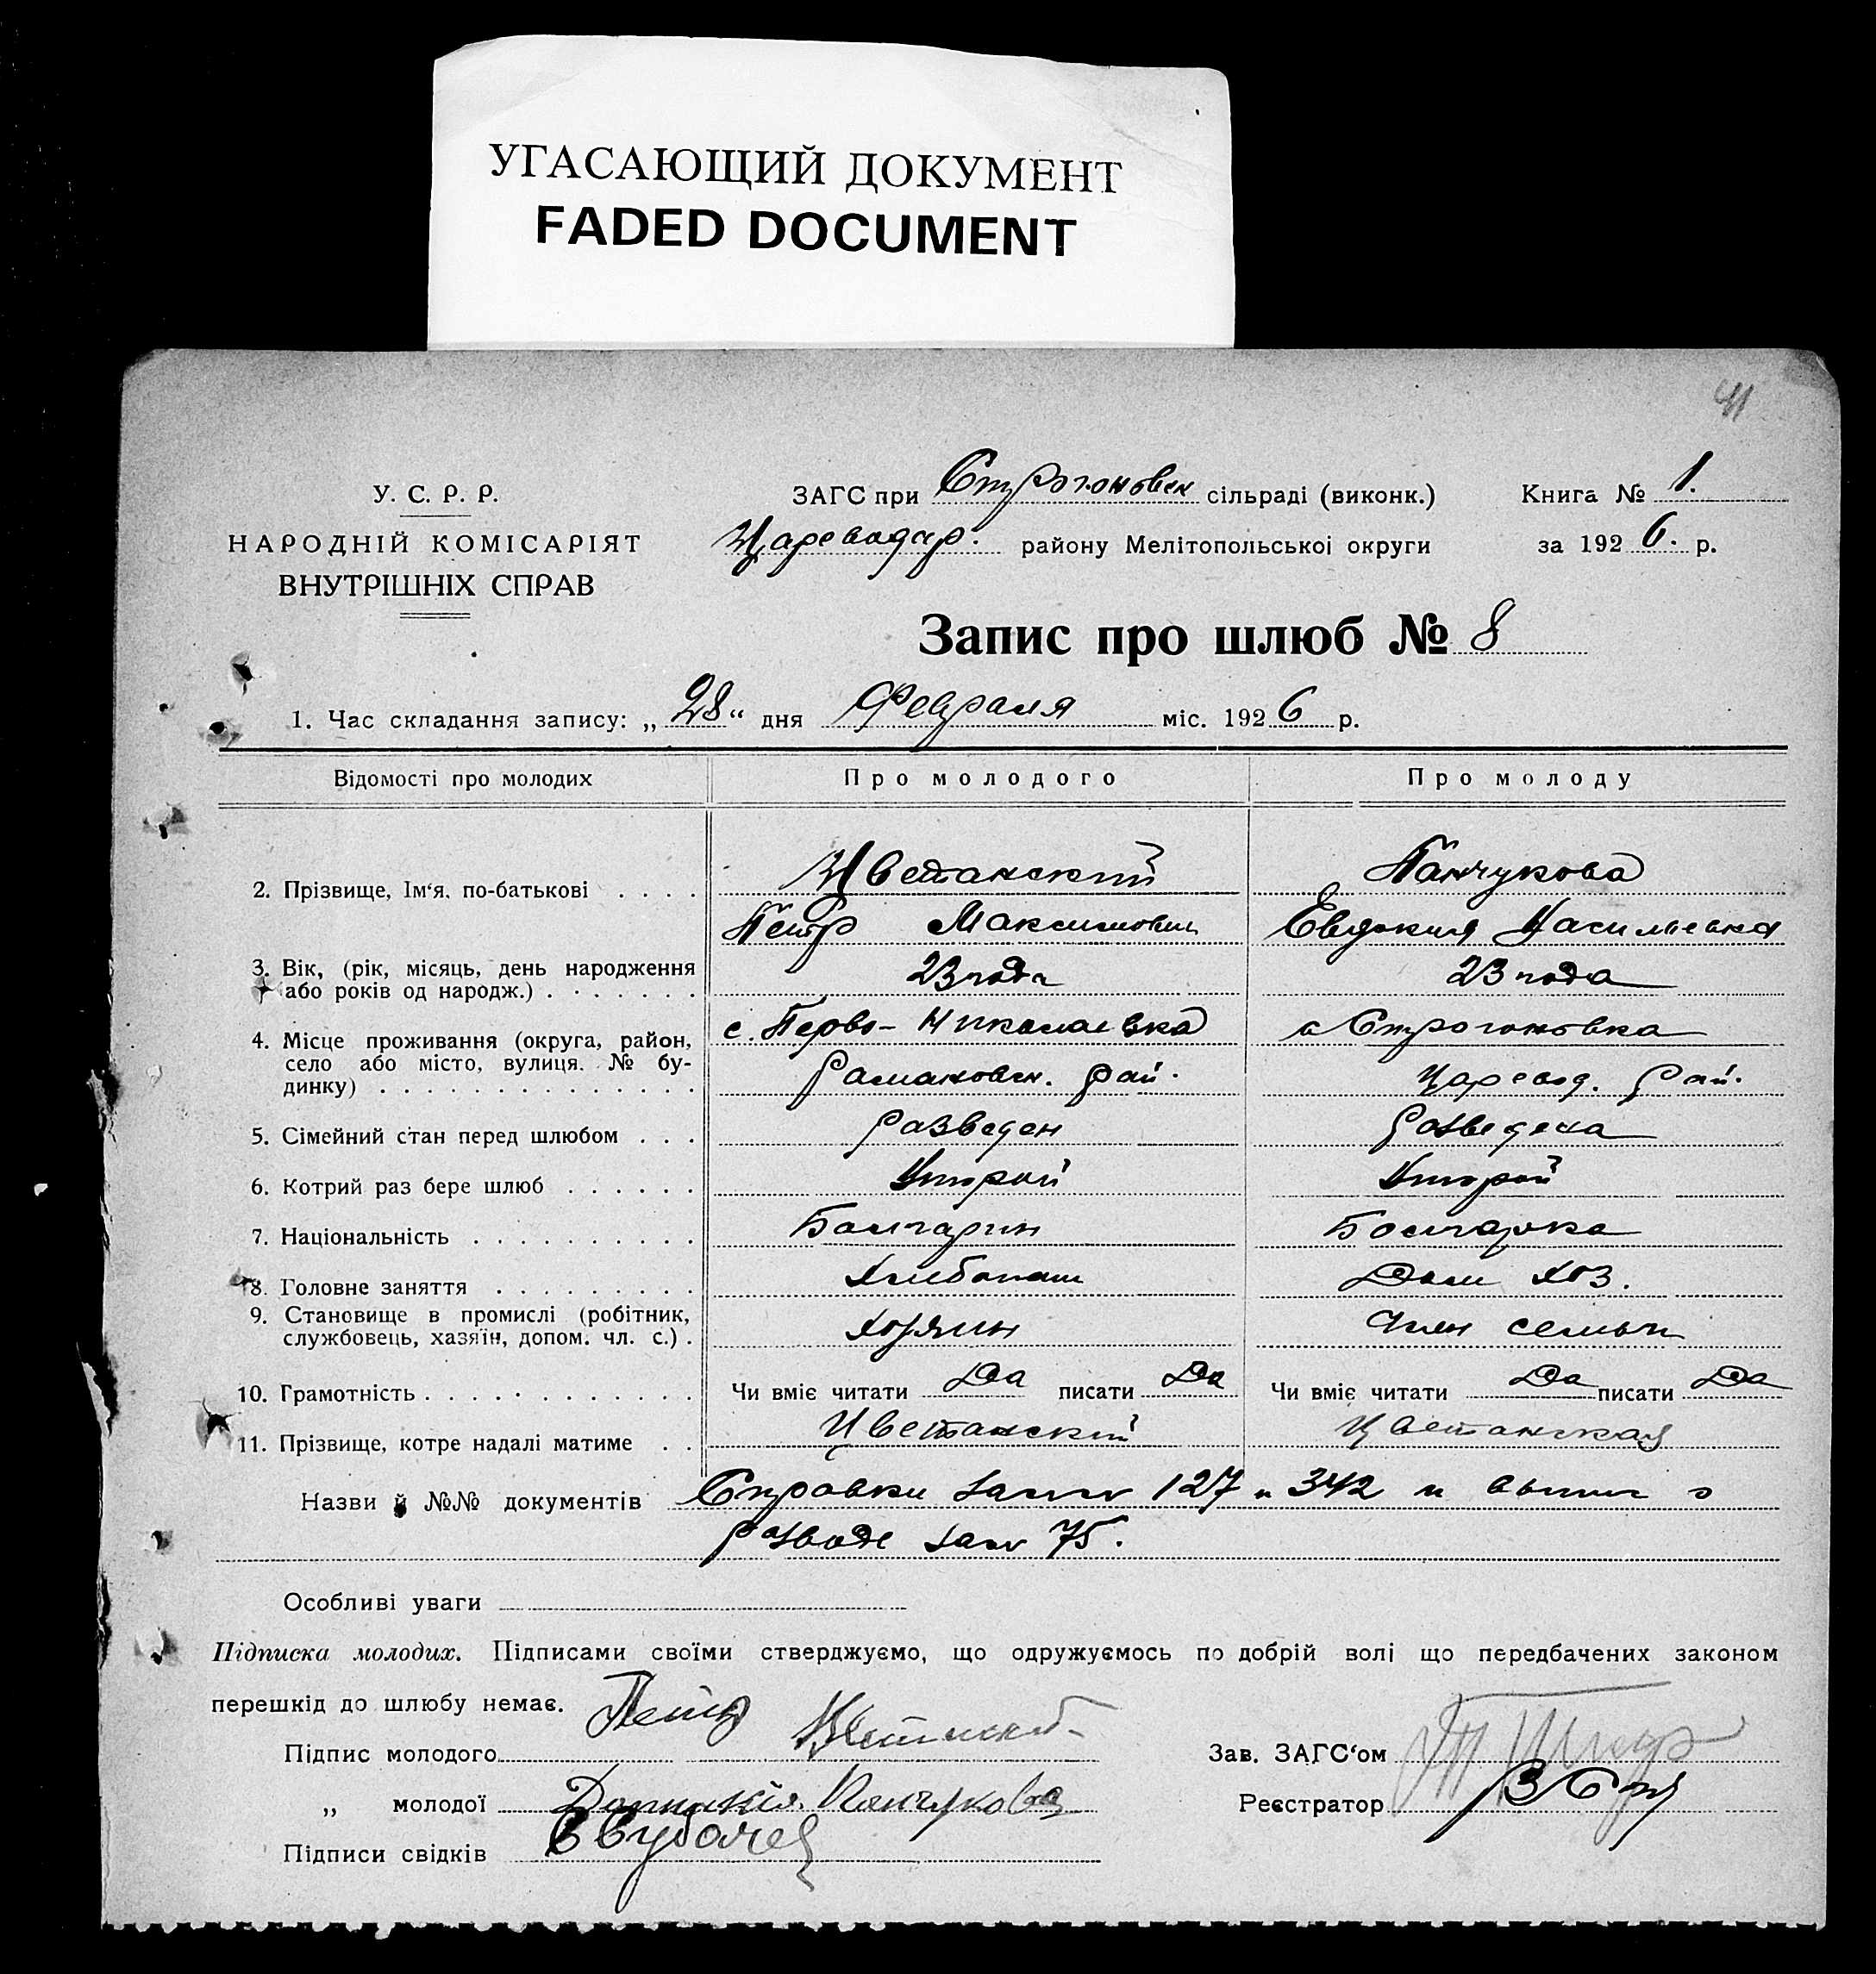 УГАСАЮЩИЙ ДОКУМЕНТ
FADED DOCUMENT
41
У. С. Р. Р.
НАРОДНІЙ КОМІСАРІЯТ
ВНУТРІШНІХ СПРАВ
ЗАГС при Строгоновск сільраді (виконк.)
Цареводар. району Мелітопольської округи
Книга № 1.
за 1926. р.
Запис про шлюб № 8
1. Час складання запису: „28“ дня Февраля міс. 1926 р.
Відомості про молодих Про молодого Про молоду
2. Прізвище, Ім‘я, по-батькові . . . . Цветанский Панчукова
Петр Максимович Евдокия Васильевна
3. Вік, (рік, місяць, день народження
або років од народж.) . . . . . . . 23 года 23 года
4. Місце проживання (округа, район,
село або місто, вулиця. № бу-
динку) . . . . . . . . . . . . . .
с. Перво-Николаевка с Строгоновка
Романовск. рай. Царевод. Рай.
5. Сімейний стан перед шлюбом . . . разведен Разведена
6. Котрий раз бере шлюб . . . . . . Второй Второй
7. Національність . . . . . . . . . . Болгарин Болгарка
8. Головне заняття . . . . . . . . . Хлебопаш Дом хоз.
9. Становище в промислі (робітник,
службовець, хазяїн, допом. чл. с.) . хозяин Член семьи
10. Грамотність . . . . . . . . . . . . Чи вміє читати Да писати Да Чи вміє читати Да писати Да
11. Прізвище, котре надалі матиме . . Цветанский Цветанская
Назви й №№ документів Справки 127 и 342 и о
разводе 75.
Особливі уваги
Підписка молодих. Підписами своїми стверджуємо, що одружуємось по добрій волі що передбачених законом
перешкід до шлюбу немає.
Підпис молодого Петр
„ молодої Панчукова
Підписи свідків
Зав. ЗАГС‘ом
Реєстратор